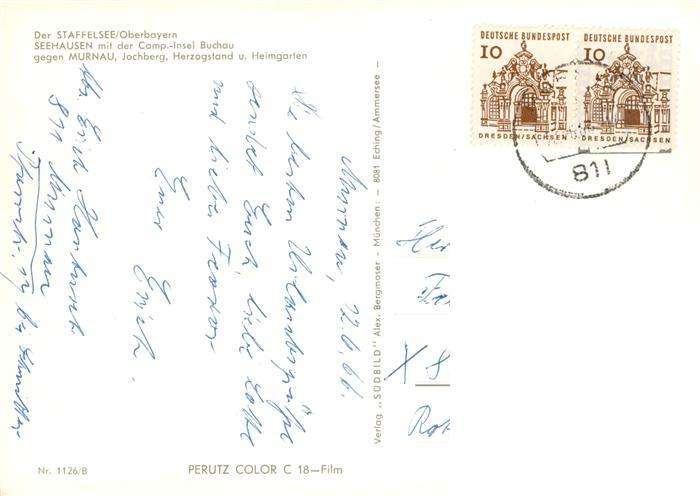 Der STAFFELSEE/Oberbayern
SEEHAUSEN mit der Camp.-Insel Buchau
gegen MURNAU, Jochberg, Herzogstand u. Heimgarten
DEUTSCHE BUNDESPOST
10
DRESDEN/SACHSEN
DEUTSCHE BUNDESPOST
10
DRESDEN/SACHSEN
811
Murnau, 22.6.66.
Die besten Urlaubsgrüße
sendet Euch, liebe Lotte
und lieber
Euer
Erich.
Abs. Erich
811 Murnau
bei
Verlag „SÜDBILD" Alex. Bergmoser - München - 8081 Eching / Ammersee -
Nr. 1126/B
PERUTZ COLOR C 18—Film